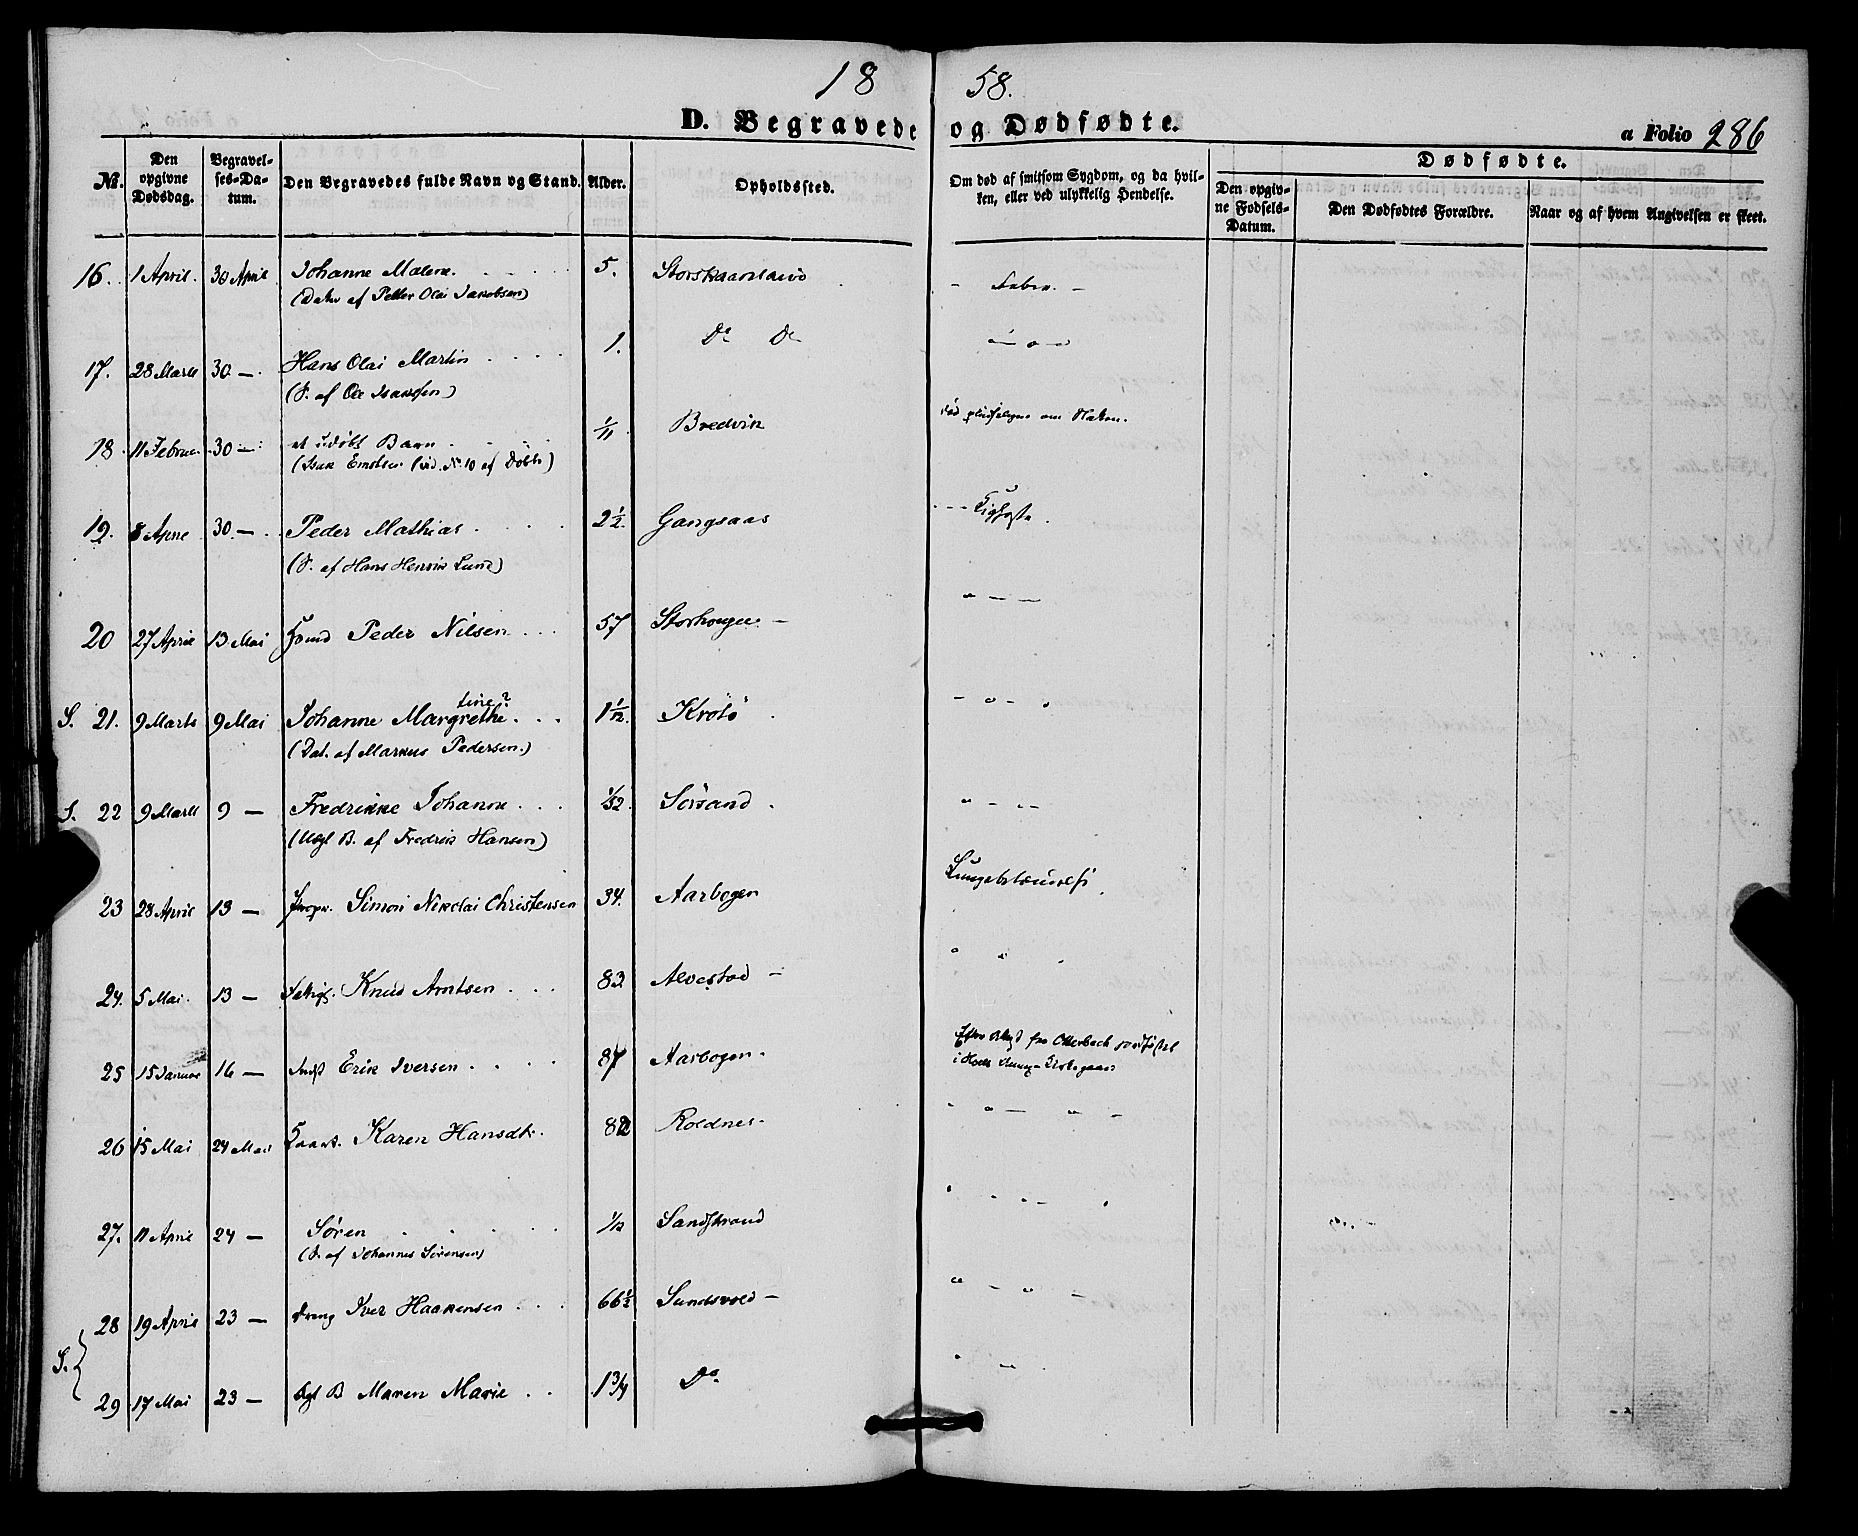 18 58.
D. Begravede og Dødfødte.
a Folio 286
Nr.
Den opgivne Dødsdag.
Begravelses-Datum.
Den Begravedes fulde Navn og Stand.
Alder.
Opholdssted.
Om død af smitsom Sygdom, og da hvilken, eller ved ulykkelig Hendelse.
Dødfødte.
Den opgivne Fødsels-Datum.
Den Dødfødtes Forældre.
Naar og af hvem Angivelsen er skeet.
16. 1 April. 30 April Johanne Malene. 5.
(Datter af Petter Olai Jakobsen)
17. 28 Marts 30 — Hans Olai Martin 1. Do Do
(S. af Ole Isaksen)
18. 11 Februar 30 — et udøbt Barn 1/11 Bredvik
(Isak Emdtsen (vid. No. 10 af Døbte)
19. 8 April 30. — Peder Mathias 2½ Gangsaas
(S. af Hans Henrik Lund)
20 27 April 13 Mai Peder Nilsen 57
S. 21. 9 Marts 9 Mai Johanne Margrethe. tine? 1 1/12. Krotø
(Dat. af Markus Pedersen.)
S. 22 9 Marts 9 — Fredrikke Johanne 1/52. Sørsand
(Uægt B. af Fredrik Hansen)
23 28 April 13 — Simon Nikolai Christensen 34. Aarbogen Lungebetændelse
24. 5 Mai. 13 — Knud Arntsen 83 Alvestad —
25 15 Januar 16 — Inds Erik Iversen 87 Aarbogen.
26 15 Mai 24 Mai Karen Hansdtr. 82 Roldnes.
27. 11 April 24 — Søren 1/12 Sandstrand
(S. af Johannes Sørensen)
28 19 April 23 — Dreng Iver Haakensen 66½ Sundsvold —
S.
29 17 Mai 23 — Ægt B Maren Marie 1¾ Do